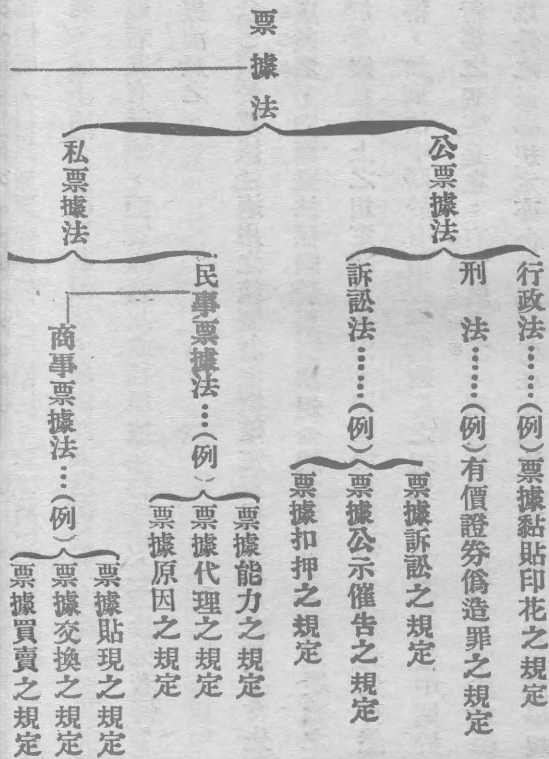 票據法
公票據法
行政法……(例)票據黏貼印花之規定
刑法……(例)有價證券僞造罪之規定
訴訟法……(例)
票據訴訟之規定
票據公示催告之規定
票據扣押之規定
私票據法
民事票據法…(例)
票據能力之規定
票據代理之規定
票據原因之規定
商事票據法…(例)
票據貼現之規定
票據交換之規定
票據買賣之規定